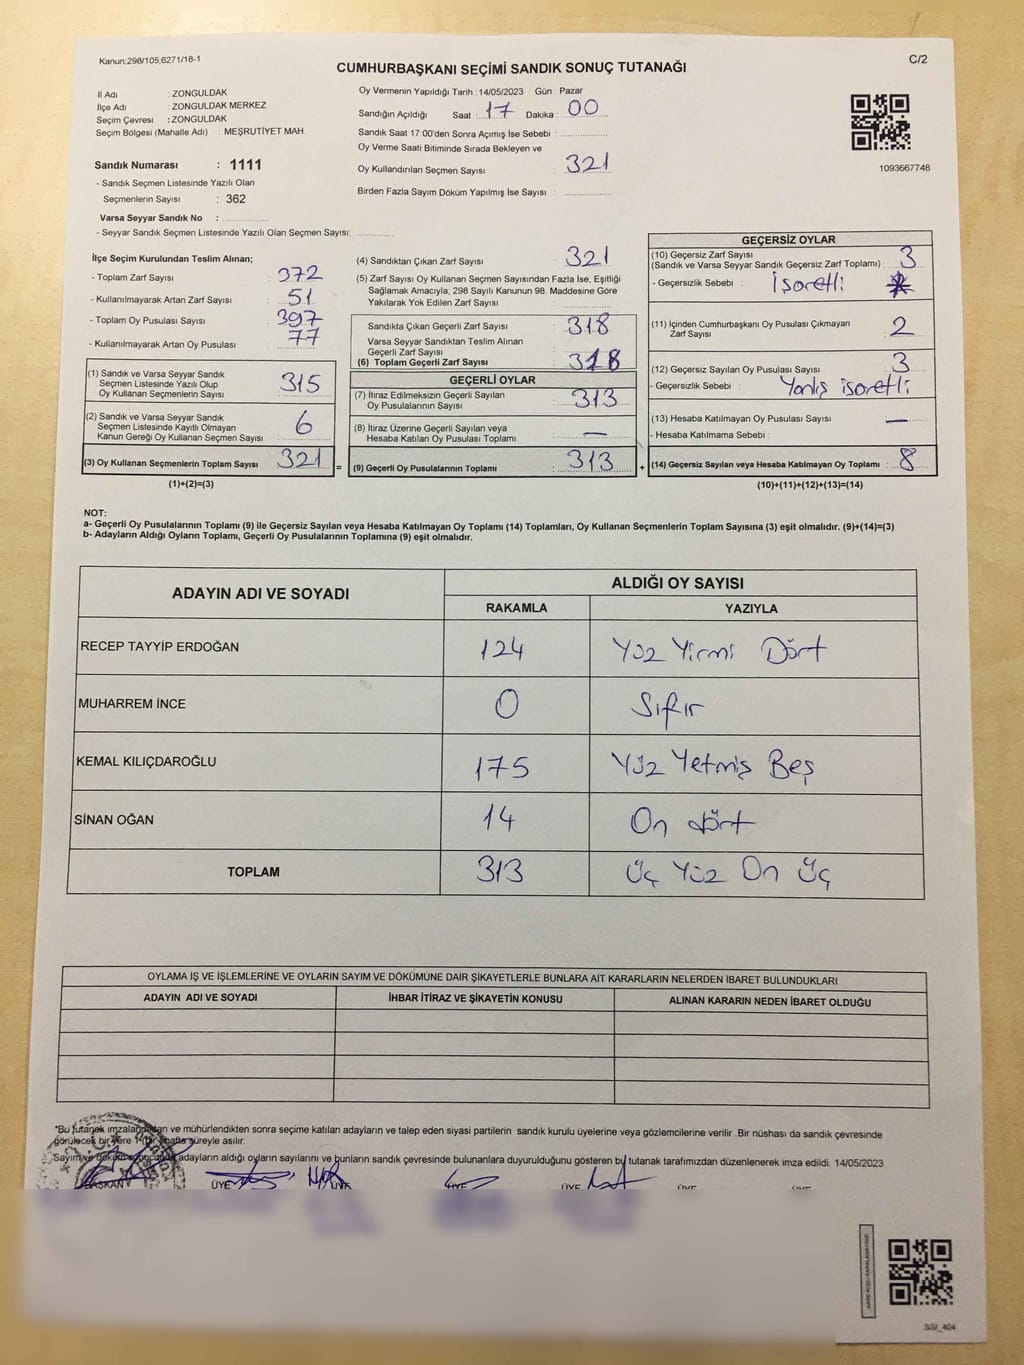 Kanun:298/105,6271/18-1
C/2
CUMHURBAŞKANI SEÇİMİ SANDIK SONUÇ TUTANAĞI
İl Adı : ZONGULDAK
İlçe Adı : ZONGULDAK MERKEZ
Seçim Çevresi : ZONGULDAK
Seçim Bölgesi (Mahalle Adı) : MEŞRUTİYET MAH.
Sandık Numarası : 1111
- Sandık Seçmen Listesinde Yazılı Olan
Seçmenlerin Sayısı : 362
Varsa Seyyar Sandık No :
- Seyyar Sandık Seçmen Listesinde Yazılı Olan Seçmen Sayısı:
Oy Vermenin Yapıldığı Tarih : 14/05/2023 Gün : Pazar
Sandığın Açıldığı Saat : 17 Dakika : 00
Sandık Saat 17:00'den Sonra Açımış İse Sebebi :
Oy Verme Saati Bitiminde Sırada Bekleyen ve
Oy Kullandırılan Seçmen Sayısı : 321
Birden Fazla Sayım Döküm Yapılmış İse Sayısı :
1093667748
İlçe Seçim Kurulundan Teslim Alınan;
- Toplam Zarf Sayısı : 372
- Kullanılmayarak Artan Zarf Sayısı : 51
- Toplam Oy Pusulası Sayısı : 397
- Kullanılmayarak Artan Oy Pusulası : 77
(1) Sandık ve Varsa Seyyar Sandık
Seçmen Listesinde Yazılı Olup
Oy Kullanan Seçmenlerin Sayısı : 315
(2) Sandık ve Varsa Seyyar Sandık
Seçmen Listesinde Kayıtlı Olmayan
Kanun Gereği Oy Kullanan Seçmen Sayısı : 6
(3) Oy Kullanan Seçmenlerin Toplam Sayısı : 321
(1)+(2)=(3)
(4) Sandıktan Çıkan Zarf Sayısı : 321
(5) Zarf Sayısı Oy Kullanan Seçmen Sayısından Fazla İse, Eşitliği
Sağlamak Amacıyla, 298 Sayılı Kanunun 98. Maddesine Göre
Yakılarak Yok Edilen Zarf Sayısı :
Sandıkta Çıkan Geçerli Zarf Sayısı : 318
Varsa Seyyar Sandıktan Teslim Alınan
Geçerli Zarf Sayısı :
(6) Toplam Geçerli Zarf Sayısı : 318
GEÇERLİ OYLAR
(7) İtiraz Edilmeksizin Geçerli Sayılan
Oy Pusulalarının Sayısı : 313
(8) İtiraz Üzerine Geçerli Sayılan veya
Hesaba Katılan Oy Pusulası Toplamı : —
= (9) Geçerli Oy Pusulalarının Toplamı : 313 +
GEÇERSİZ OYLAR
(10) Geçersiz Zarf Sayısı
(Sandık ve Varsa Seyyar Sandık Geçersiz Zarf Toplamı) : 3
- Geçersizlik Sebebi : İsaretli
(11) İçinden Cumhurbaşkanı Oy Pusulası Çıkmayan
Zarf Sayısı : 2
(12) Geçersiz Sayılan Oy Pusulası Sayısı : 3
- Geçersizlik Sebebi : Yanlış isaretli
(13) Hesaba Katılmayan Oy Pusulası Sayısı : —
- Hesaba Katılmama Sebebi :
(14) Geçersiz Sayılan veya Hesaba Katılmayan Oy Toplamı : 8
(10)+(11)+(12)+(13)=(14)
NOT:
a- Geçerli Oy Pusulalarının Toplamı (9) ile Geçersiz Sayılan veya Hesaba Katılmayan Oy Toplamı (14) Toplamları, Oy Kullanan Seçmenlerin Toplam Sayısına (3) eşit olmalıdır. (9)+(14)=(3)
b- Adayların Aldığı Oyların Toplamı, Geçerli Oy Pusulalarının Toplamına (9) eşit olmalıdır.
ADAYIN ADI VE SOYADI ALDIĞI OY SAYISI
RAKAMLA YAZIYLA
RECEP TAYYİP ERDOĞAN 124 Yüz Yirmi Dört
MUHARREM İNCE 0 Sıfır
KEMAL KILIÇDAROĞLU 175 Yüz Yetmiş Beş
SİNAN OĞAN 14 On dört
TOPLAM 313 Üç Yüz On Üç
OYLAMA İŞ VE İŞLEMLERİNE VE OYLARIN SAYIM VE DÖKÜMÜNE DAİR ŞİKAYETLERLE BUNLARA AİT KARARLARIN NELERDEN İBARET BULUNDUKLARI
ADAYIN ADI VE SOYADI İHBAR İTİRAZ VE ŞİKAYETİN KONUSU ALINAN KARARIN NEDEN İBARET OLDUĞU
*Bu tutanak imzalandıktan ve mühürlendikten sonra seçime katılan adayların ve talep eden siyasi partilerin sandık kurulu üyelerine veya gözlemcilerine verilir .Bir nüshası da sandık çevresinde
görülecek bir yere 1 bir hafta süreyle asılır.
Sayım ve döküm adayların aldığı oyların sayılarını ve bunların sandık çevresinde bulunanlara duyurulduğunu gösteren bu tutanak tarafımızdan düzenlenerek imza edildi. 14/05/2023
BAŞKAN ÜYE ÜYE ÜYE ÜYE ÜYE ÜYE
SSI_404